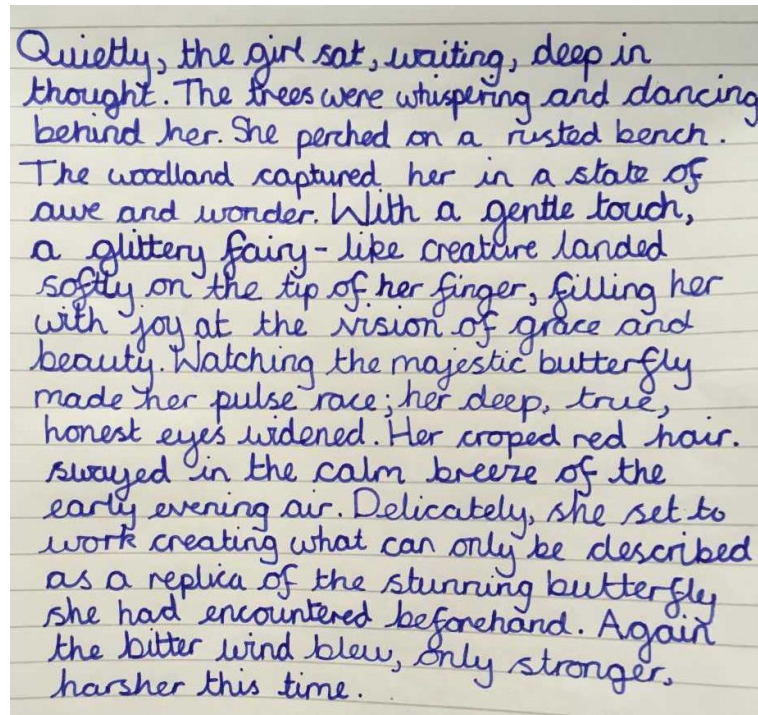 Quietly, the girl sat, waiting, deep in
thought. The trees were whispering and dancing
behind her. She perched on a rusted bench.
The woodland captured her in a state of
awe and wonder. With a gentle touch,
a glittery fairy-like creature landed
softly on the tip of her finger, filling her
with joy at the vision of grace and
beauty. Watching the majestic butterfly
made her pulse race; her deep, true,
honest eyes widened. Her croped red hair.
swayed in the calm breeze of the
early evening air. Delicately, she set to
work creating what can only be described
as a replica of the stunning butterfly
she had encountered beforehand. Again
the bitter wind blew, only stronger,
harsher this time.